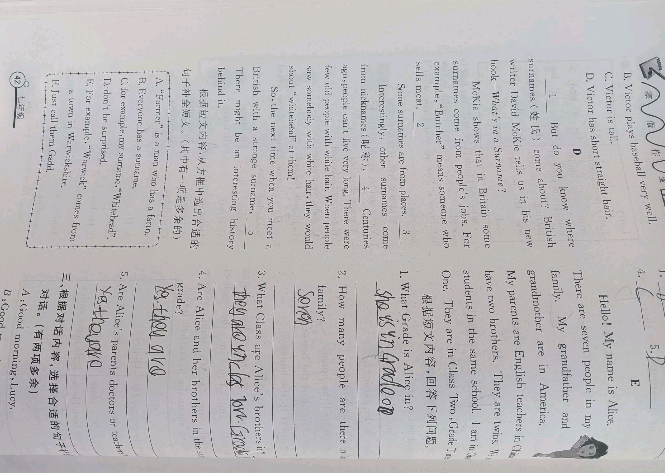 B. Victor plays baseball very well.
C. Victor is tall.
D. Victor has short straight hair.
D
1 But do you know where
surnames(姓氏) come about? British
writer David McKie tells us in his new
book What's in a Surname?
McKie shows that in Britain some
surnames come from people's jobs. For
example, "Butcher" means someone who
sells meat. 2
Some surnames are from places. 3
Interestingly, other surnames come
from nicknames(昵称). 4 Centuries
ago, people can't live very long. There were
few old people with white hair. When people
saw somebody with white hair, they would
shout "whitehead" at them!
So, the next time when you meet a
British with a strange surname, 5
There might be an interesting history
behind it.
根据短文内容,从方框中选出合适的
句子补全短文。(其中有一项是多余的)
A. "Farmer" is a man who has a farm.
B. Everyone has a surname.
C. for example, my surname, "Whitehead".
D. don't be surprised.
E. For example, "Warwick" comes from
a town in Warwickshire.
F. Just call them Gadd.
42
5. D
E
Hello! My name is Alice.
There are seven people in my
family. My grandfather and
grandmother are in America.
My parents are English teachers in
have two brothers. They are twins.
students in the same school. I am in
One. They are in Class Two, Grade
根据短文内容,回答下列问题。
1. What Grade is Alice in?
she is in Grade one
2. How many people are there
family?
Seven
3. What Class are Alice's brothers in?
4. Are Alice and her brothers in the
grade?
Yes they are
5. Are Alice's parents doctors or
Yes they are
三、根据对话内容,选择合适的句子
对话。(有两项多余)
A: Good morning, Lucy.